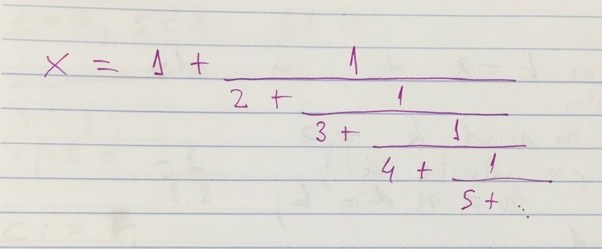 x = 1 + 1
2 + 1
3 + 1
4 + 1
5 + ⋱